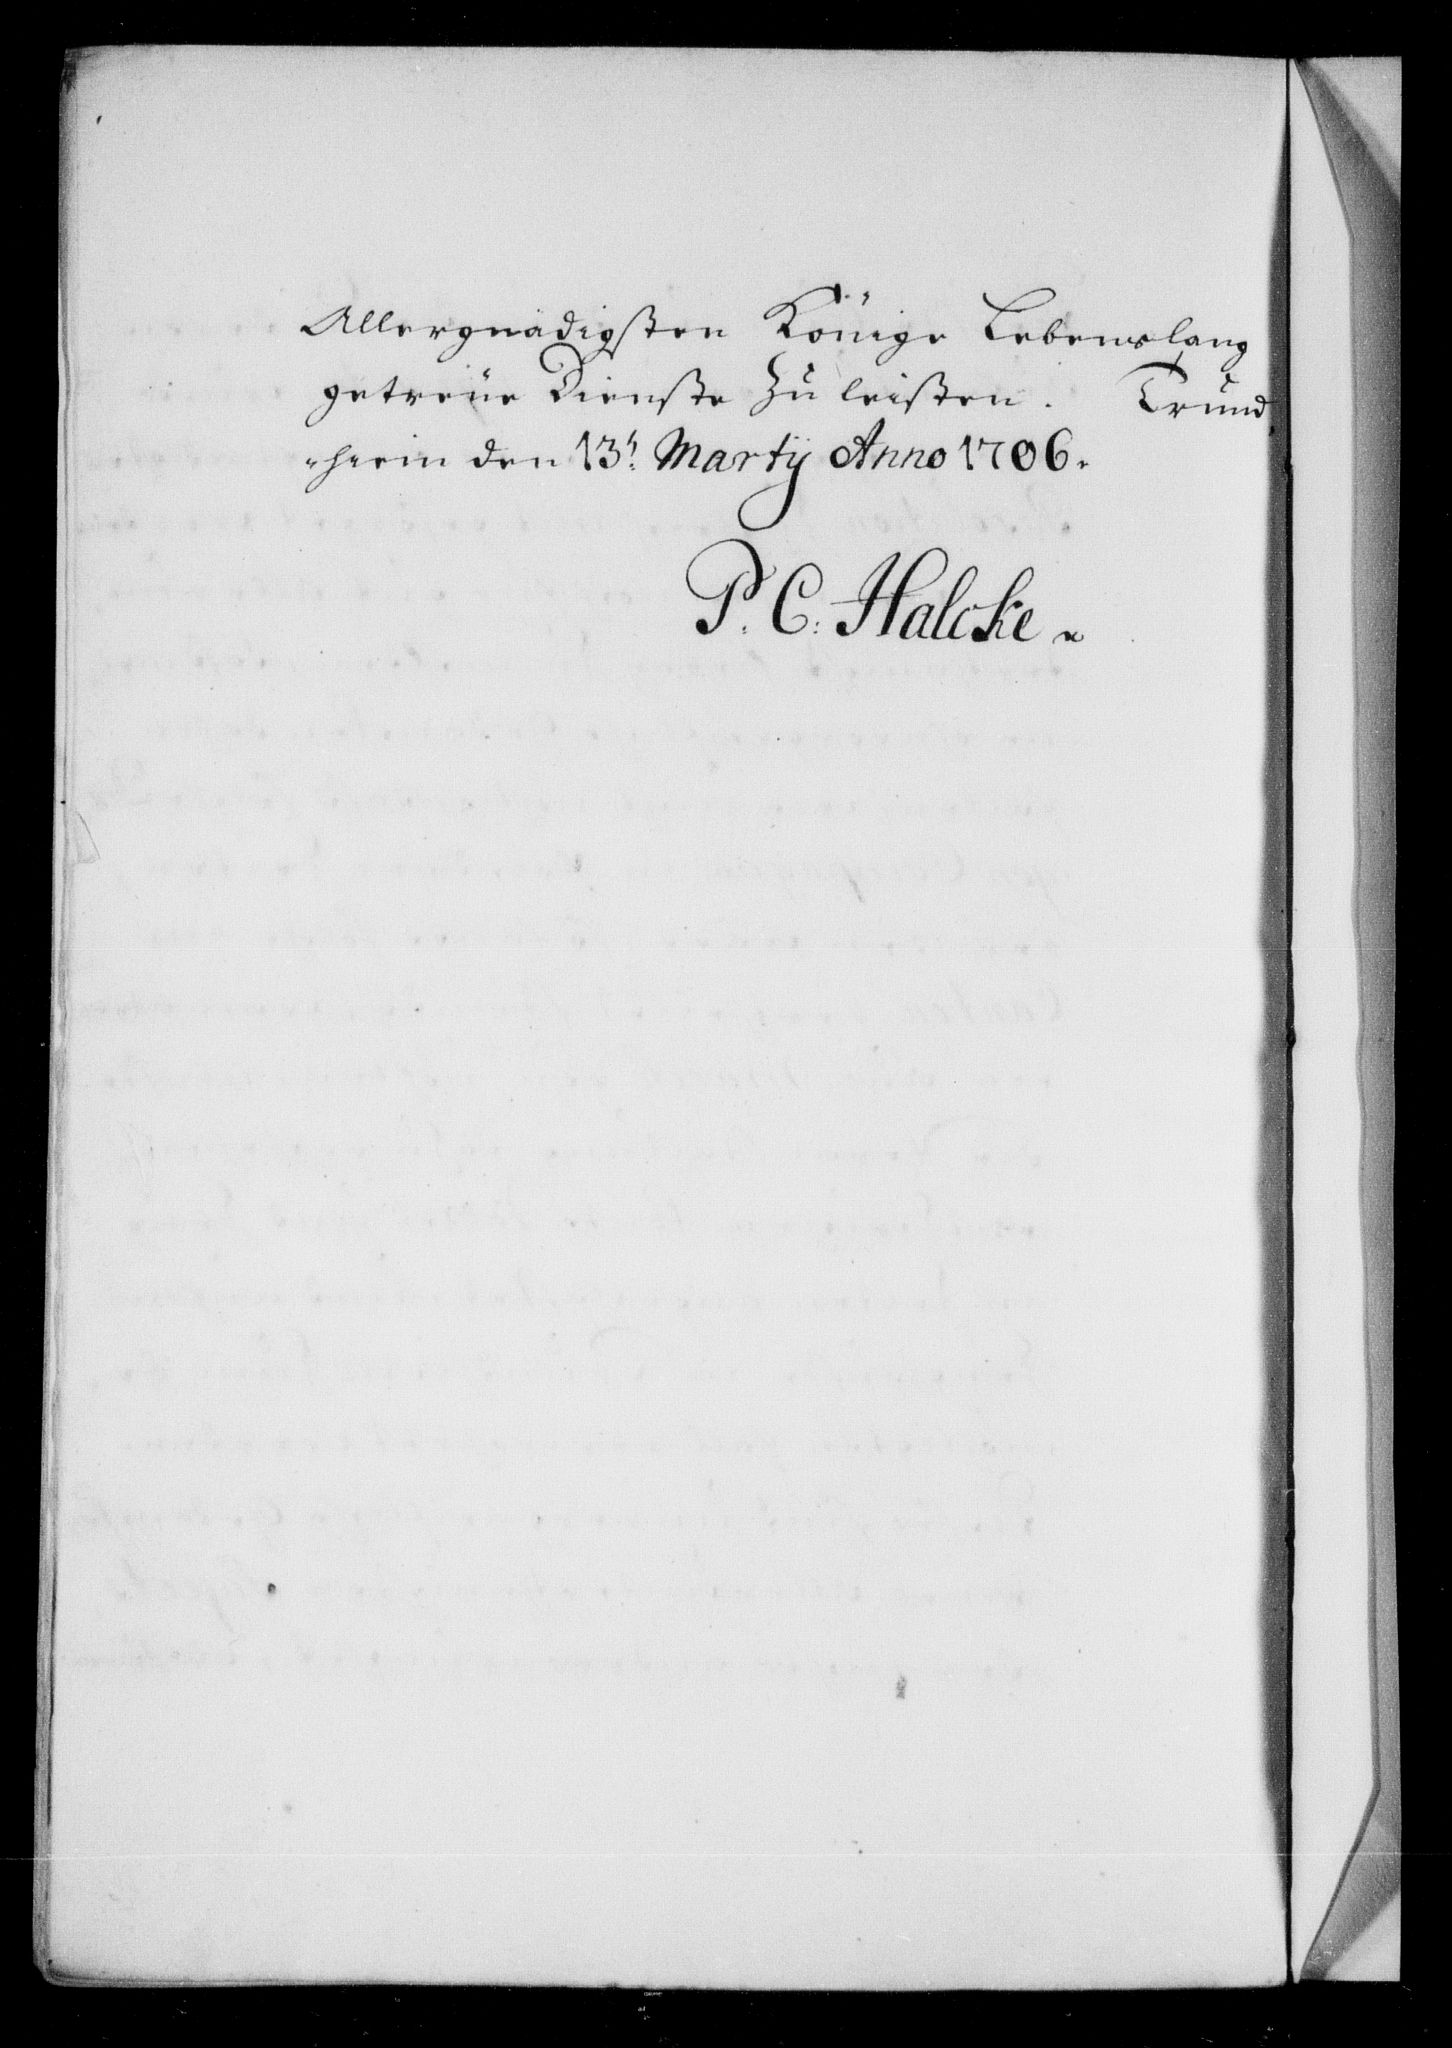 Allergnädigsten Könige Lebenslang
getreüe Dienste Zu leisten. Trund
-heim den 13t. Martij Anno 1706.
P. C. Halcke